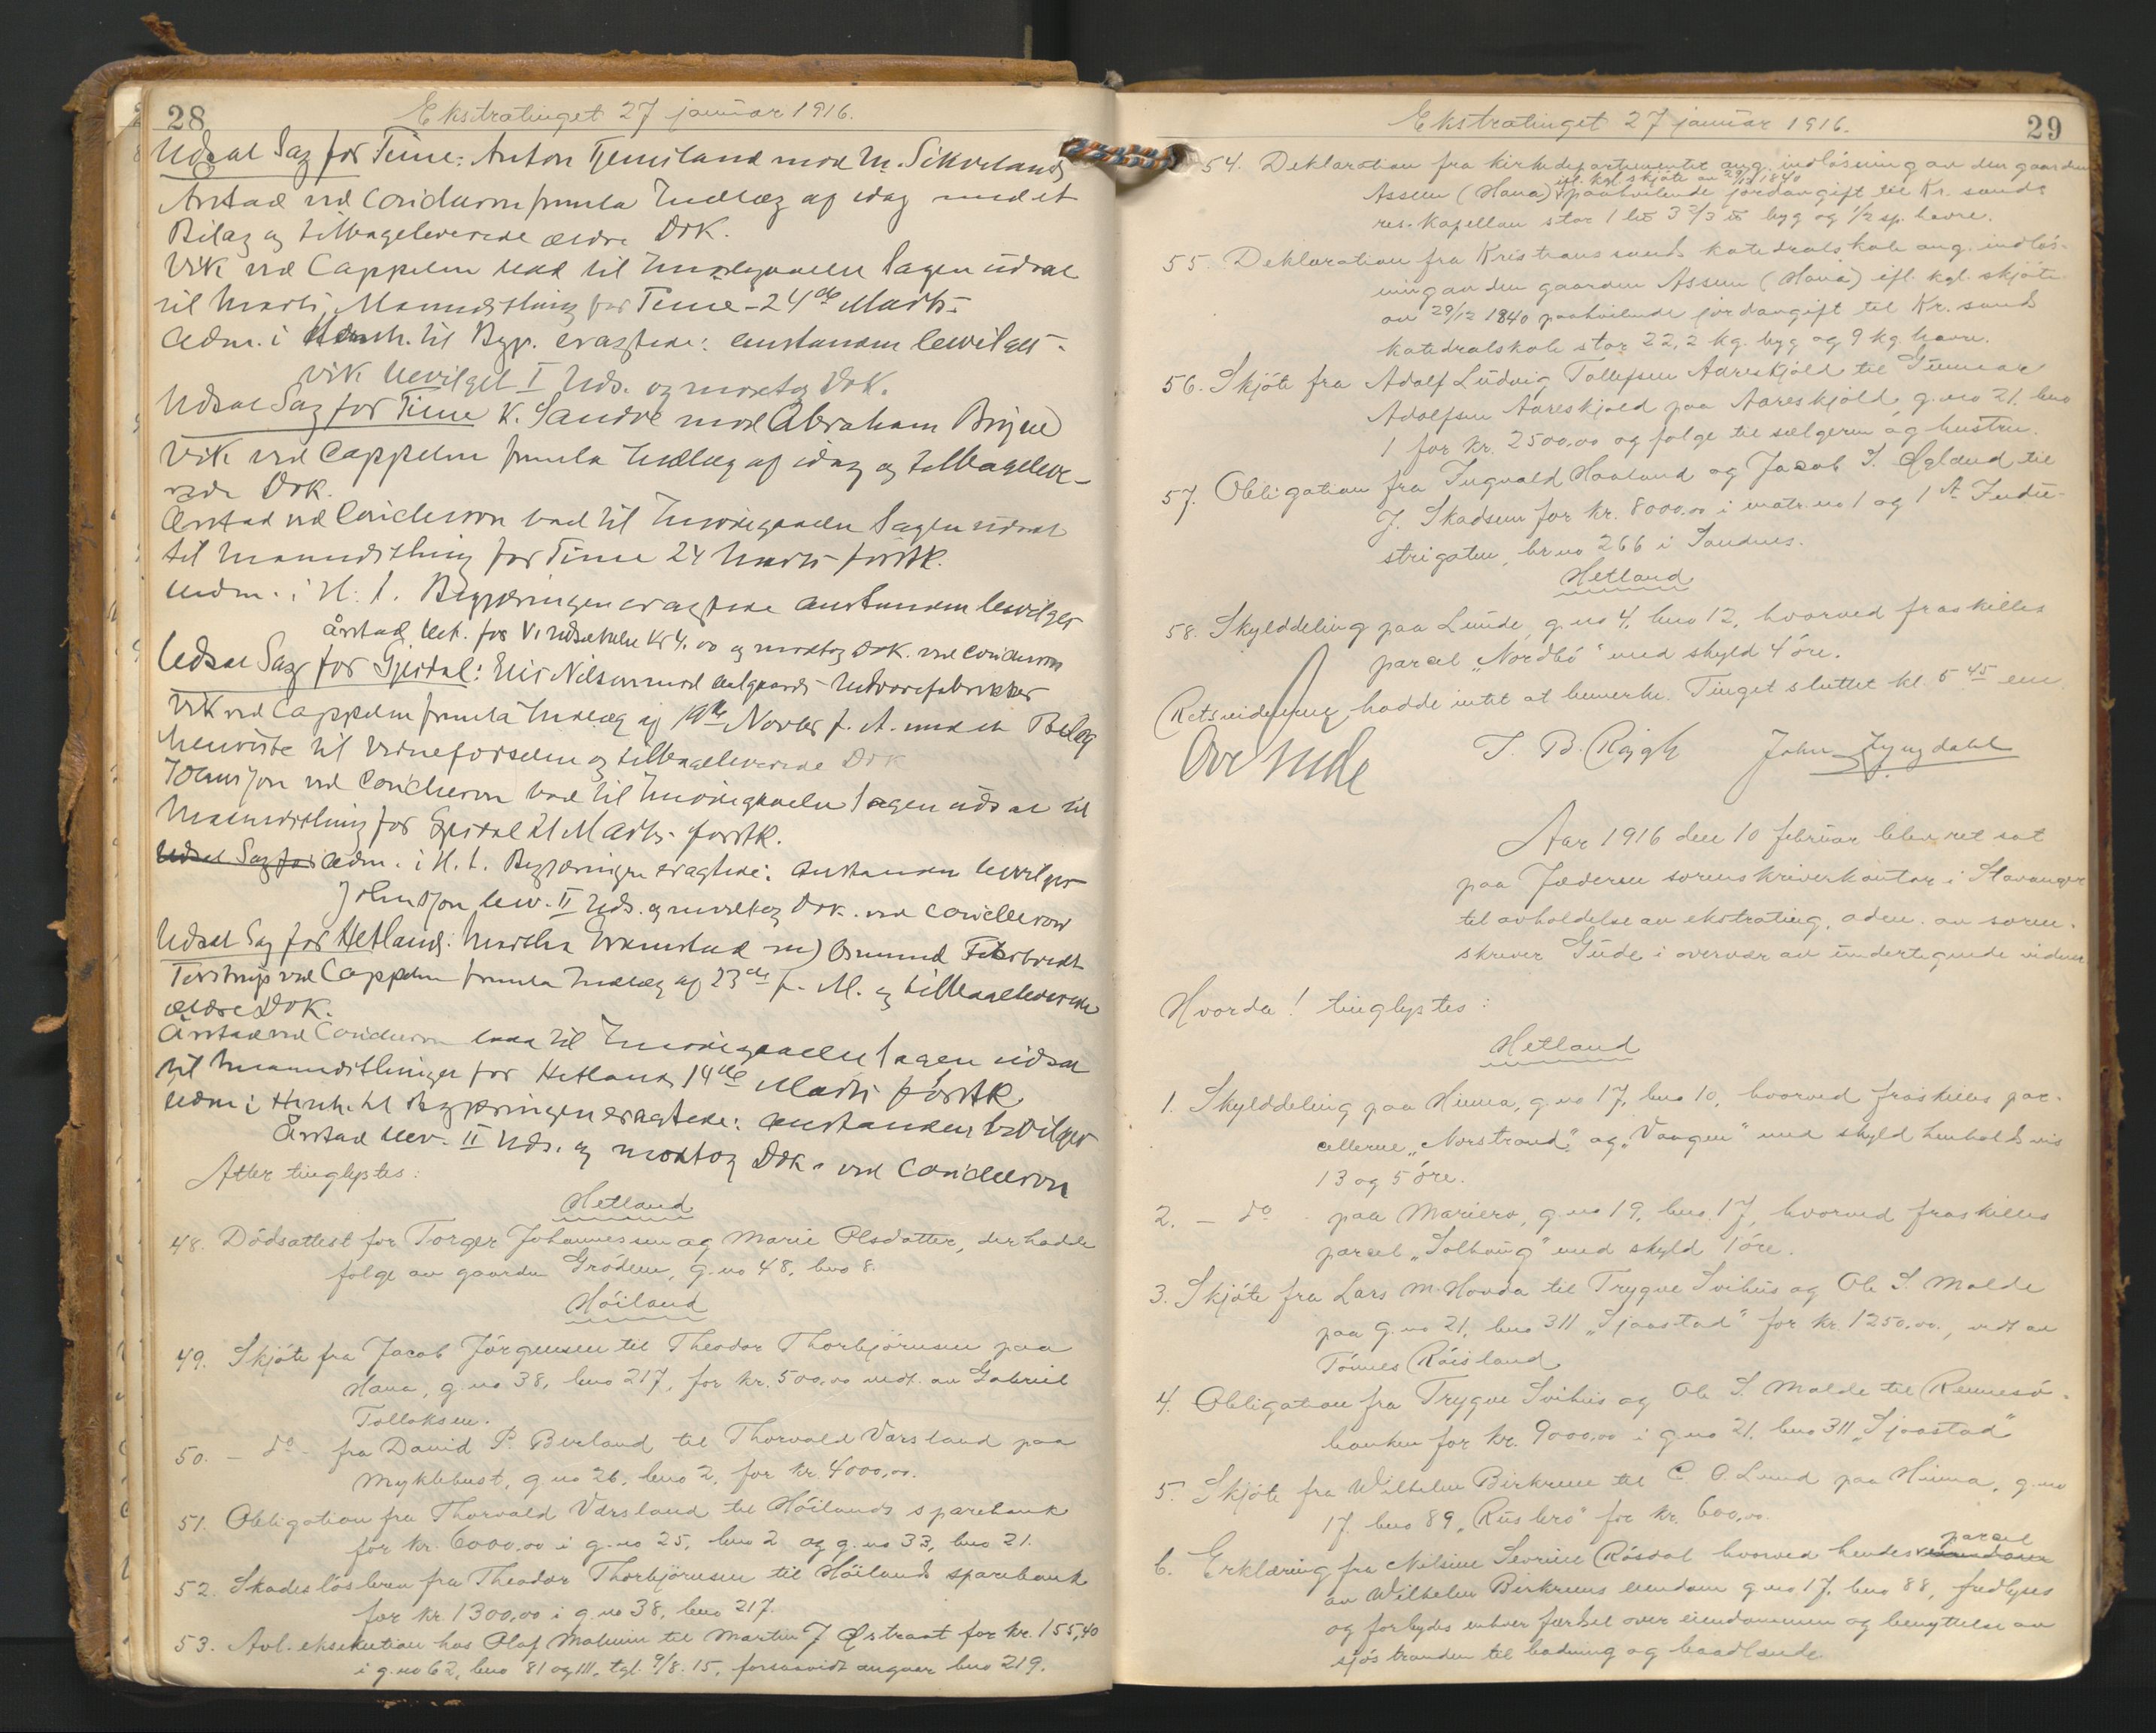 28
Ekstratinget 27 januar 1916.
Udsat Sag for Time: Anton Tjemsland mod M. Sikveland
Årstad ved Conditoren fremla Indlæg af idag med et
Bilag og tilbageleverede ældre Dok.
Vik ved Cappelen bad til Imødegaaelse Sagen udsat
til Marts Maanedsthing for Time - 24de Marts.
Adm. i Henh. til Begj. eragtede: Anstanden bevilges.
Vik bevilget I Uds. og modtog Dok.
Udsat Sag for Time K. Sandve mod Abraham Bryne
Vik ved Cappelen fremla Indlæg af idag og tilbageleve-
rede Dok.
Årstad ved bad til Imødegaaelse Sagen udsat
til Maanedsthing for Time 24 Marts førstk.
Adm. i H. t. Begjæringen eragtede Anstanden bevilges
Årstad bet. for Udsættelse Kr 4.00 og modtog Dok. ved
Udsat Sag for Gjesdal: Elis Nilsen mod Aalgaards Uldvarefabrikker
Vik ved Cappelen fremla Indlæg af Novbr f. A. med et Bilag
henviste til Vidneførselen og tilbageleverede Dok
Johnsson ved bad til Imødegaaelse Sagen udsat til
Maanedsthing for Gjesdal 21 Marts førstk.
Udsat Sag for Adm. i H. t. Begjæringen eragtede: Anstanden bevilges
Johnsson bev. II Uds. og modtog Dok. ved
Udsat Sag for Hetland: Martha mod Osmund
ved Cappelen fremla Indlæg af 23de f. M. og tilbageleverede
ældre Dok.
Årstad ved bad til Imødegaaelse Sagen udsat
til Maanedsthinget for Hetland 14de Marts førstk.
Adm i Henh. til Begjæringen eragtede: Anstanden bevilges
Årstad bev. II Uds. og modtog Dok. ved
Atter tinglystes:
Hetland
48. Dödsattest for Torger Johannessen og Marie Olsdatter, der hadde
folge av gaarden Grödem, g.no 48, bno 8.
Höiland
49. Skjöte fra Jacob Jörgensen til Theodor Thorbjörnsen paa
Hana, g.no 38, bno 217, for kr. 500,00 vedt. av Gabriel
Tollaksen.
50. - do - fra David P. Berland til Thorvald Varsland paa
Myklebust, g.no 26, bno 2, for kr. 4000,00.
51. Obligation fra Thorvald Varsland til Höilands sparebank
for kr. 6000,00 i g.no 25, bno 2 og g.no 33, bno 21.
52. Skadeslösbrev fra Theodor Thorbjörnsen til Höilands sparebank
for kr. 1300,00 i g.no 38, bno 217.
53. Avl. eksekution hos Olaf Malmin til Martin J Østraat for kr. 155,40
i g.no 62, bno 81 og 111, tgl. 9/8.15, forsaavidt angaar bno 219.
29
Ekstratinget 27 januar 1916.
54. Deklaration fra kirkedepartementet ang. indlösning av den gaarden
ifl. kgl. skjöte av 29/12 1840
Assen (Hana) paahvilende jordavgift til Kr. sands
res. kapellan stor 1 bts 3 2/3 ℔ byg og 1/2 sp. havre.
55. Deklaration fra Kristianssands katedralskole ang. indlös-
ning av den gaarden Assen (Hana) ifl. kgl. skjöte
av 29/12 1840 paahvilende jordavgift til Kr. sands
katedralskole stor 22,2 kg. byg og 9 kg havre.
56. Skjöte fra Adolf Ludvig Tollefsen Aareskjold til Gunnar
Adolfsen Aareskjold paa Aareskjold, g.no 21, bno
1 for kr. 2500,00 og folge til sælgeren og hustru.
57. Obligation fra Ingvald Haaland og Jacob S. Øgland til
J. Skadsem for kr. 8000,00 i matr. no 1 og 1 A Indu-
strigaten, br.no 266 i Sandnes.
Hetland
58. Skylddeling paa Lunde, g.no 4, bno 12, hvorved fraskilles
parcel „Nordbö“ med skyld 4 öre.
Retsvidnerne hadde intet at bemerke. Tinget sluttet kl. 5 45 em.
Ove Gude
T. B. Rygh
John Lyngdahl
Aar 1916 den 10 februar blev ret sat
paa Jæderen sorenskriverkontor i Stavanger
til avholdelse av ekstrating, adm. av soren-
skriver Gude i overvær av undertegnede vidner
Hvorda! tinglystes:
Hetland
1. Skylddeling paa Hinna, g.no 17, bno 10, hvorved fraskilles par-
cellerne „Norstrand“ og „Vaagen“ med skyld henholdsvis
13 og 5 öre.
2. - do - paa Mariero, g.no 19, bno 17, hvorved fraskilles
parcel „Solhaug“ med skyld 1 öre.
3. Skjöte fra Lars M. Hovda til Trygve Svihus og Ole S. Malde
paa g.no 21, bno 311 „Sjaastad“ for kr. 1250,00, vedt av
Tönnes Röisland
4. Obligation fra Trygve Svihus og Ole S. Malde til Rennesö-
banken for kr. 9000,00 i g.no 21, bno 311 „Sjaastad“
5. Skjöte fra Wilhelm Birkrem til C. O. Lund paa Hinna, g.no
17, bno 89, „Rusbro“ for kr. 600,00.
6. Erklæring fra Nilsine Severine Rosdal hvorved hendes parcel
av Wilhelm Birkrems eiendom g.no 17, bno 88, fredlyses
og forbydes enhver færdsel over eiendommen og benyttelse av
sjöstranden til badning og baadlænde